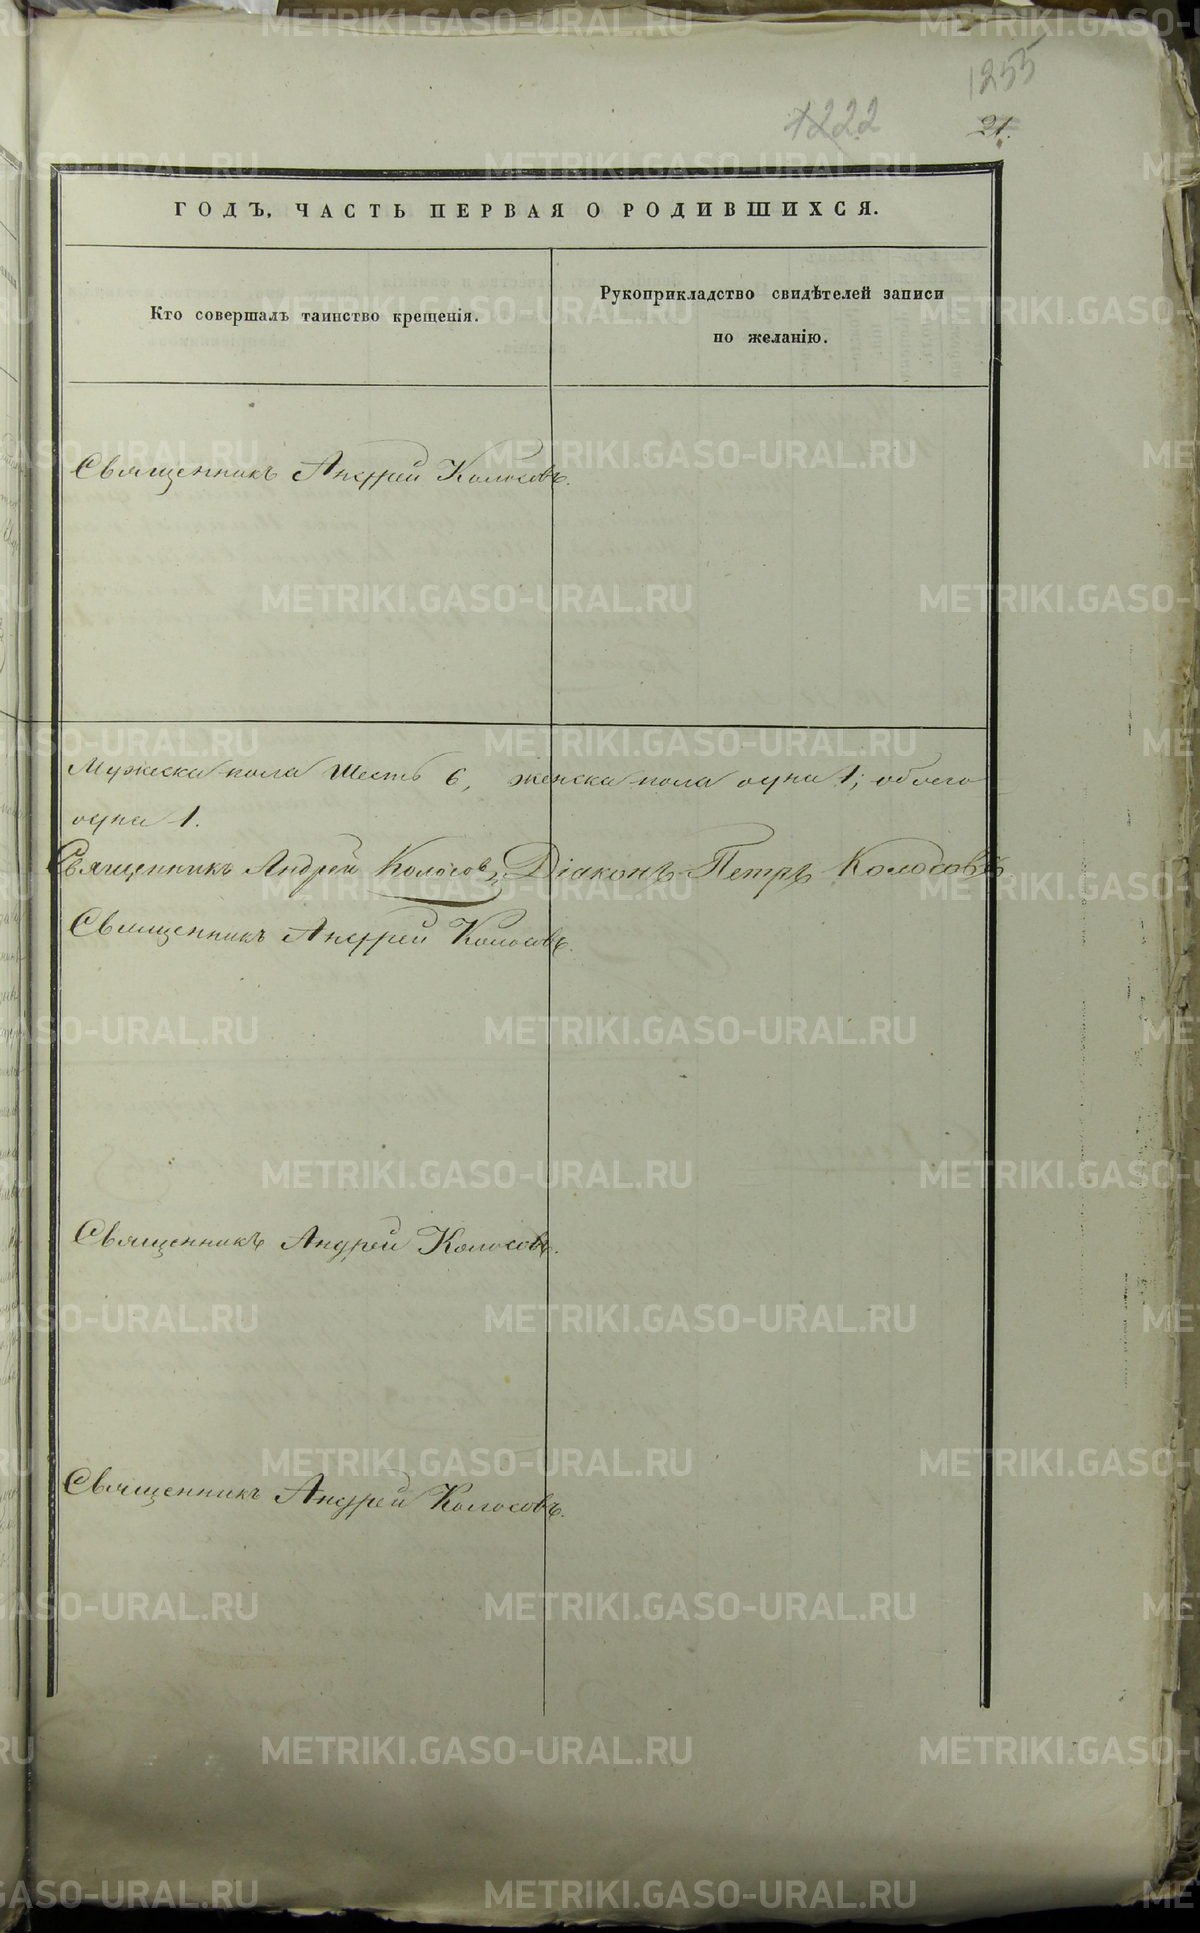 1255
1222
21.
ГОДЪ, ЧАСТЬ ПЕРВАЯ О РОДИВШИХСЯ.
Кто совершалъ таинство крещенія.
Рукоприкладство свидѣтелей записи
по желанію.
Священникъ Андрей Колосовъ.
Мужеска пола шесть 6, женска пола одна 1; обоего
одна 1.
Священникъ Андрей Колосовъ, Діаконъ Петръ Колосовъ
Священникъ Андрей Колосовъ.
Священникъ Андрей Колосовъ.
Священникъ Андрей Колосовъ.
METRIKI.GASO-URAL.RU